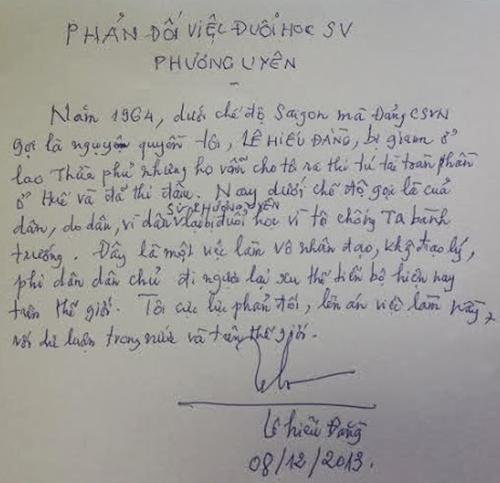 PHẢN ĐỐI VIỆC ĐUỔI HỌC SV
PHƯƠNG UYÊN
Năm 1964, dưới chế độ Saigon mà Đảng CSVN
gọi là nguỵ quyền tôi, LÊ HIẾU ĐẰNG, bị giam ở
lao Thừa phủ nhưng họ vẫn cho tô ra thi tú tài toàn phần
ở Huế và đã thi đậu. Nay dưới chế độ gọi là của
SV PHƯƠNG UYÊN
dân, do dân, vì dân lại bị đuổi học vì tộ chống Ta bành
trướng. Đây là một việc làm vô nhân đạo, khg đạo lý,
phi dân dân chủ đi ngược lại xu thế tiến bộ hiện nay
trên thế giới. Tôi cực lực phản đối, lên án việc làm này
với dư luận trong nước và trên thế giới.
Lê hiếu Đằng
08/12/2013.